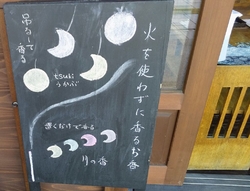 火を使わずに香るお香
吊るして香る
tsuki
うかぶ
置くだけで香る
月の香